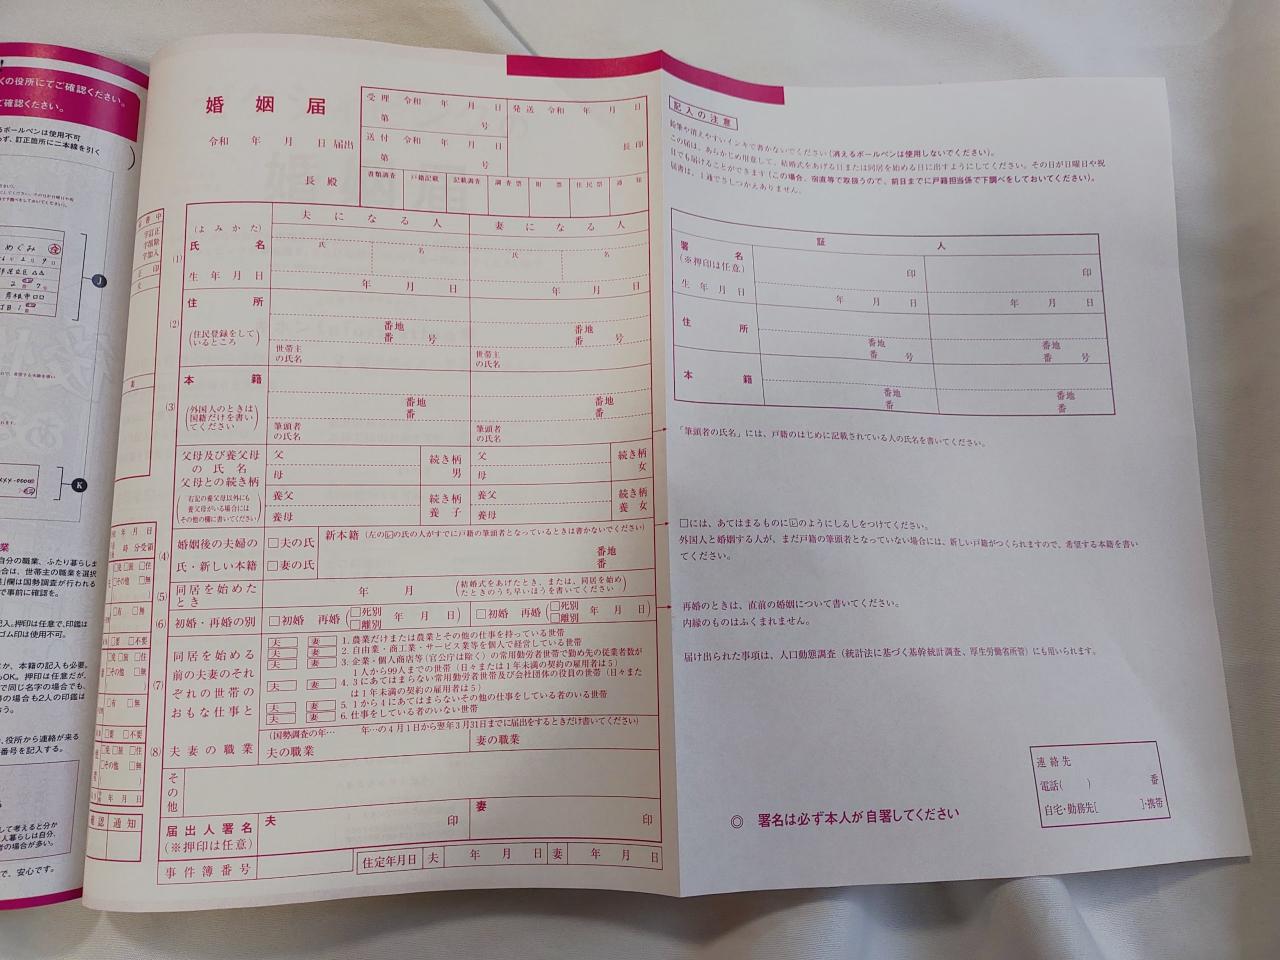 くの役所にてご確認ください。
ご確認ください。
るボールペンは使用不可
わず、訂正箇所に二本線を引く
めぐみ
J
K
自分の職業、ふたり暮らしま
合は、世帯主の職業を選択
欄は国勢調査が行われる
で事前に確認を。
記入。押印は任意で、印鑑は
ゴム印は使用不可。
か、本籍の記入も必要。
OK。押印は任意だが、
で同じ名字の場合でも、
の場合も2人の印鑑は
、役所から連絡が来る
番号を記入する。
して考えると分か
人暮らしは自分、
者の場合が多い。
で、安心です。
字訂正
字削除
字加入
年 月 日
時 分受領
□その他 □無
□有 □無
□要 □不要
□その他 □無
□有 □無
□要 □不要
□その他 □無
年 月 日
確認 通知
婚姻届
令和 年 月 日 届出
長 殿
受理 令和 年 月 日
第 号
送付 令和 年 月 日
第 号
発送 令和 年 月 日
長印
書類調査 戸籍記載 記載調査 調査票 附票 住民票 通知
夫になる人 妻になる人
(1)
(よみかた)
氏名
氏 名 氏 名
生年月日 年 月 日 年 月 日
(2)
住所
(住民登録をしているところ)
番地 番 号 番地 番 号
世帯主の氏名 世帯主の氏名
(3)
本籍
(外国人のときは国籍だけを書いてください)
番地 番 番地 番
筆頭者の氏名 筆頭者の氏名
父母及び養父母の氏名
父母との続き柄
(右記の養父母以外にも養父母がいる場合にはその他の欄に書いてください)
父 続き柄 父 続き柄
母 男 母 女
養父 続き柄 養父 続き柄
養母 養子 養母 養女
(4)
婚姻後の夫婦の氏・新しい本籍
□夫の氏
□妻の氏
新本籍(左の☑の氏の人がすでに戸籍の筆頭者となっているときは書かないでください)
番地
番
(5)
同居を始めたとき
年 月
(結婚式をあげたとき、または、同居を始めたときのうち早いほうを書いてください)
(6)
初婚・再婚の別
□初婚 再婚(□死別 □離別 年 月 日) □初婚 再婚(□死別 □離別 年 月 日)
(7)
同居を始める前の夫妻のそれぞれの世帯のおもな仕事と
夫 妻 1. 農業だけまたは農業とその他の仕事を持っている世帯
夫 妻 2. 自由業・商工業・サービス業等を個人で経営している世帯
夫 妻 3. 企業・個人商店等(官公庁は除く)の常用勤労者世帯で勤め先の従業者数が
1人から99人までの世帯(日々または1年未満の契約の雇用者は5)
夫 妻 4. 3にあてはまらない常用勤労者世帯及び会社団体の役員の世帯(日々または
は1年未満の契約の雇用者は5)
夫 妻 5. 1から4にあてはまらないその他の仕事をしている者のいる世帯
夫 妻 6. 仕事をしている者のいない世帯
(8)
夫妻の職業
(国勢調査の年… 年…の4月1日から翌年3月31日までに届出をするときだけ書いてください)
夫の職業 妻の職業
その他
届出人署名
(※押印は任意)
夫 印 妻 印
事件簿番号
住定年月日 夫 年 月 日 妻 年 月 日
記入の注意
鉛筆や消えやすいインキで書かないでください(消えるボールペンは使用しないでください)。
この届は、あらかじめ用意して、結婚式をあげる日または同居を始める日に出すようにしてください。その日が日曜日や祝
日でも届けることができます(この場合、宿直等で取扱うので、前日までに戸籍担当係で下調べをしておいてください)。
届書は、1通でさしつかえありません。
証人
署名
(※押印は任意)
印 印
生年月日 年 月 日 年 月 日
住所
番地 番 号 番地 番 号
本籍
番地 番 番地 番
「筆頭者の氏名」には、戸籍のはじめに記載されている人の氏名を書いてください。
□には、あてはまるものに☑のようにしるしをつけてください。
外国人と婚姻する人が、まだ戸籍の筆頭者となっていない場合には、新しい戸籍がつくられますので、希望する本籍を書い
てください。
再婚のときは、直前の婚姻について書いてください。
内縁のものはふくまれません。
届け出られた事項は、人口動態調査(統計法に基づく基幹統計調査、厚生労働省所管)にも用いられます。
◎ 署名は必ず本人が自署してください
連絡先
電話( ) 番
自宅・勤務先[ ]・携帯